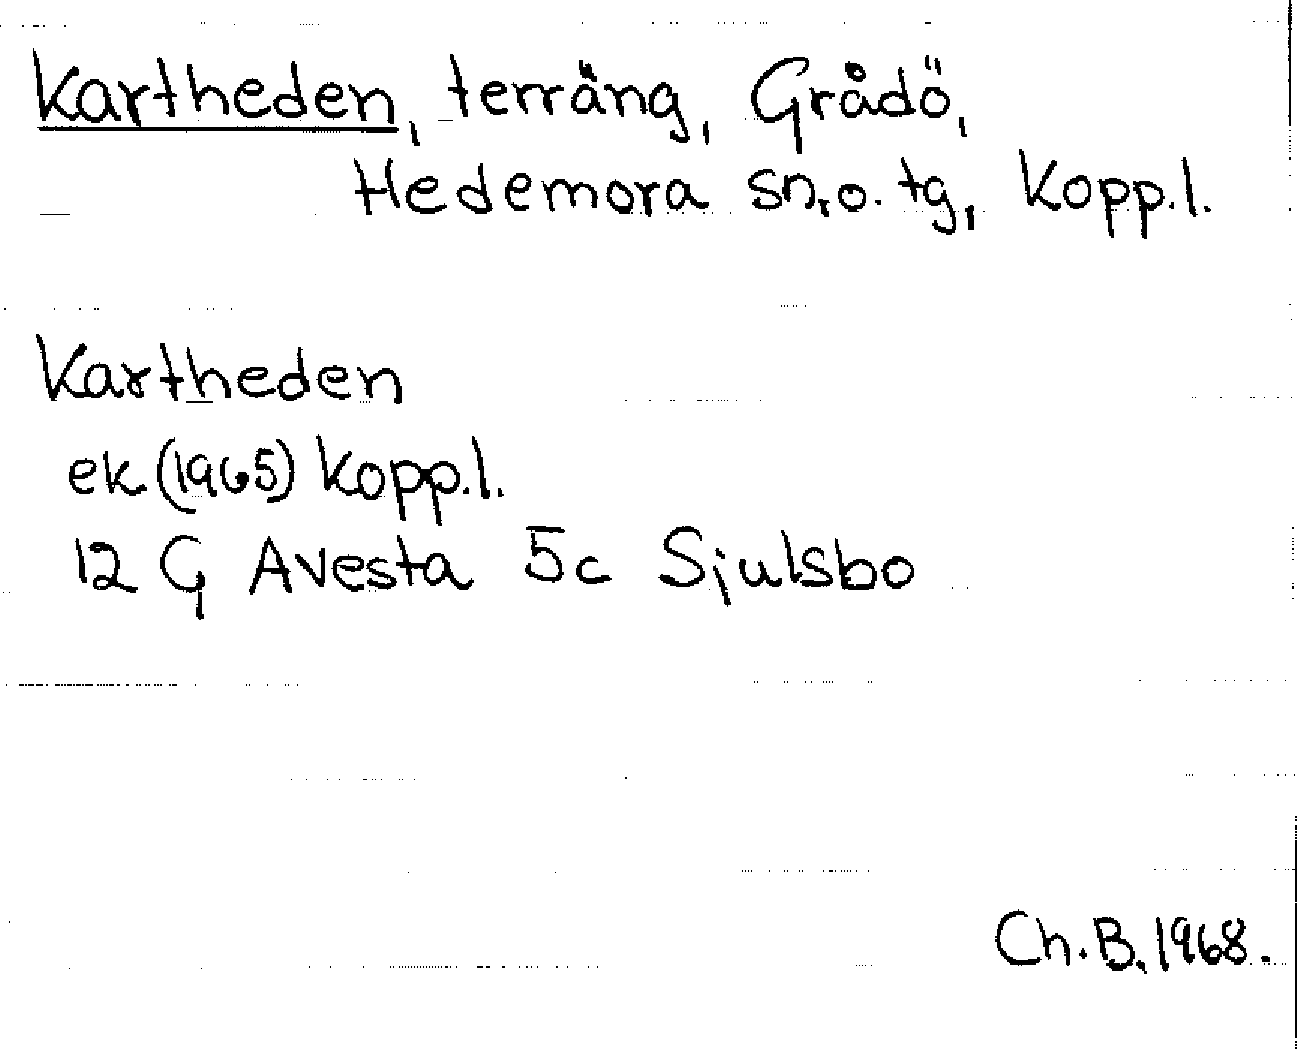 Kartheden, terräng, Grådö,
Hedemora sn.o. tg, Kopp.l.
Kartheden
ek (1965) Kopp.l.
12 G Avesta 5c Sjulsbo
Ch.B. 1968.